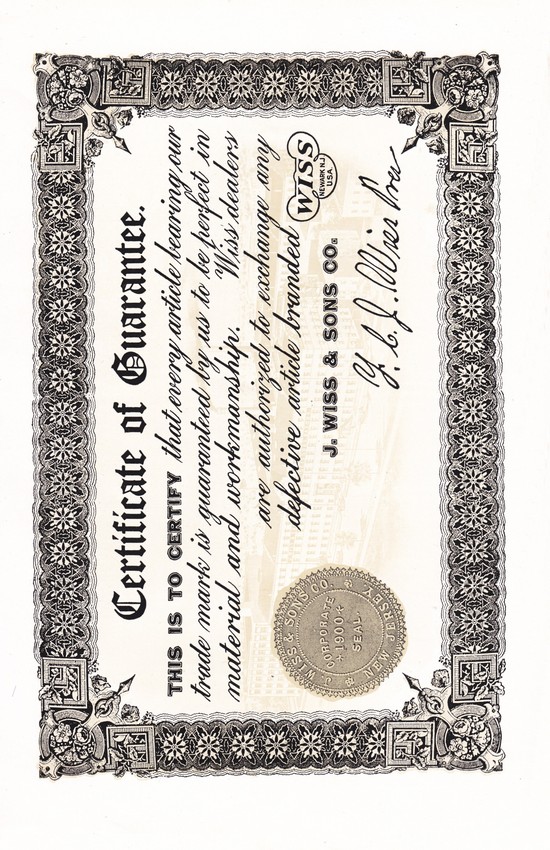 Certificate of Guarantee.
THIS IS TO CERTIFY that every article bearing our
trade mark is guaranteed by us to be perfect in
material and workmanship. Wiss dealers
are authorized to exchange any
defective article branded WISS NEWARK N.J. U.S.A.
J. WISS & SONS CO.
J. WISS & SONS CO. NEW JERSEY
CORPORATE
1900
SEAL
J. Wiss Pres